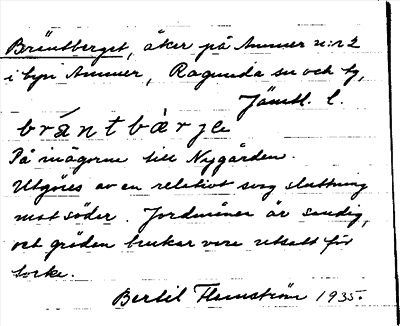 Bräntberget, åker på Ammer n:r 2
i byn Ammer, Ragunda sn och tg,
Jämtl. l.
bräntbärʒe
På inägorna till Nygården.
Utgöres av en relativt svag sluttning
mot söder. Jordmånen är sandig,
och gröden brukar vara utsatt för
torka.
Bertil Flemström 1935.